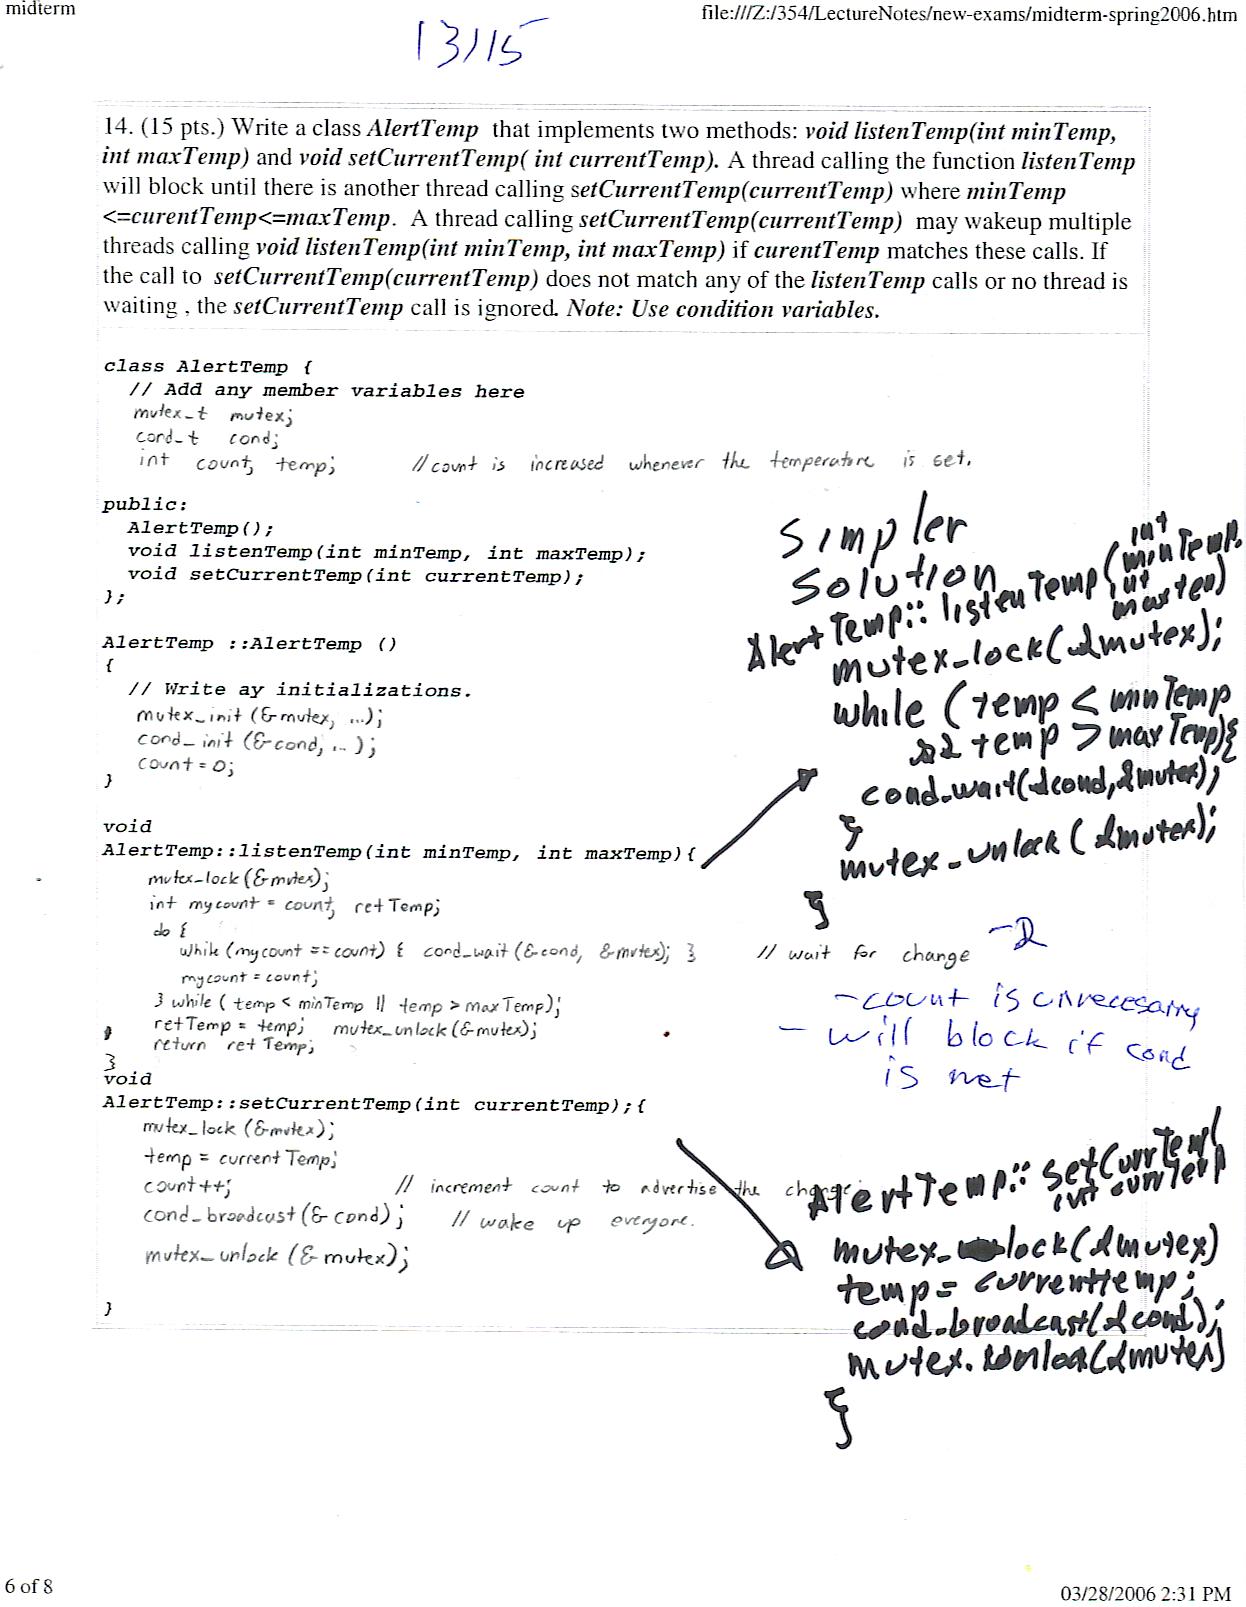 midterm
file:///Z:/354/LectureNotes/new-exams/midterm-spring2006.htm
13/15
14. (15 pts.) Write a class AlertTemp that implements two methods: void listenTemp(int minTemp,
int maxTemp) and void setCurrentTemp( int currentTemp). A thread calling the function listenTemp
will block until there is another thread calling setCurrentTemp(currentTemp) where minTemp
<=curentTemp<=maxTemp. A thread calling setCurrentTemp(currentTemp) may wakeup multiple
threads calling void listenTemp(int minTemp, int maxTemp) if curentTemp matches these calls. If
the call to setCurrentTemp(currentTemp) does not match any of the listenTemp calls or no thread is
waiting , the setCurrentTemp call is ignored. Note: Use condition variables.
class AlertTemp {
// Add any member variables here
mutex_t mutex;
cond_t cond;
int count, temp; // count is increased whenever the temperature is set.
public:
AlertTemp();
void listenTemp(int minTemp, int maxTemp);
void setCurrentTemp(int currentTemp);
};
AlertTemp ::AlertTemp ()
{
// Write ay initializations.
mutex_init (&mutex, ...);
cond_init (&cond, ...);
count = 0;
}
void
AlertTemp::listenTemp(int minTemp, int maxTemp){
mutex_lock (&mutex);
int mycount = count, retTemp;
do {
while (mycount == count) { cond_wait (&cond, &mutex); } // wait for change
mycount = count;
} while ( temp < minTemp || temp > maxTemp);
retTemp = temp; mutex_unlock (&mutex);
return retTemp;
}
void
AlertTemp::setCurrentTemp(int currentTemp);{
mutex_lock (&mutex);
temp = currentTemp;
count++; // increment count to advertise the change
cond_broadcast (&cond); // wake up everyone.
mutex_unlock (&mutex);
}
Simpler
Solution
AlertTemp:: listenTemp(int minTemp,
int maxtem)
mutex_lock(&mutex);
while (temp < minTemp
&& temp > maxTemp){
cond_wait(&cond, &mutex);
}
mutex_unlock (&mutex);
}
-2
- count is unnecesarry
- will block if cond
is met
AlertTemp:: setCurrTemp(
int currTemp
mutex_lock(&mutex)
temp = currenttemp;
cond_broadcast(&cond);
mutex_unlock(&mutex)
}
6 of 8
03/28/2006 2:31 PM